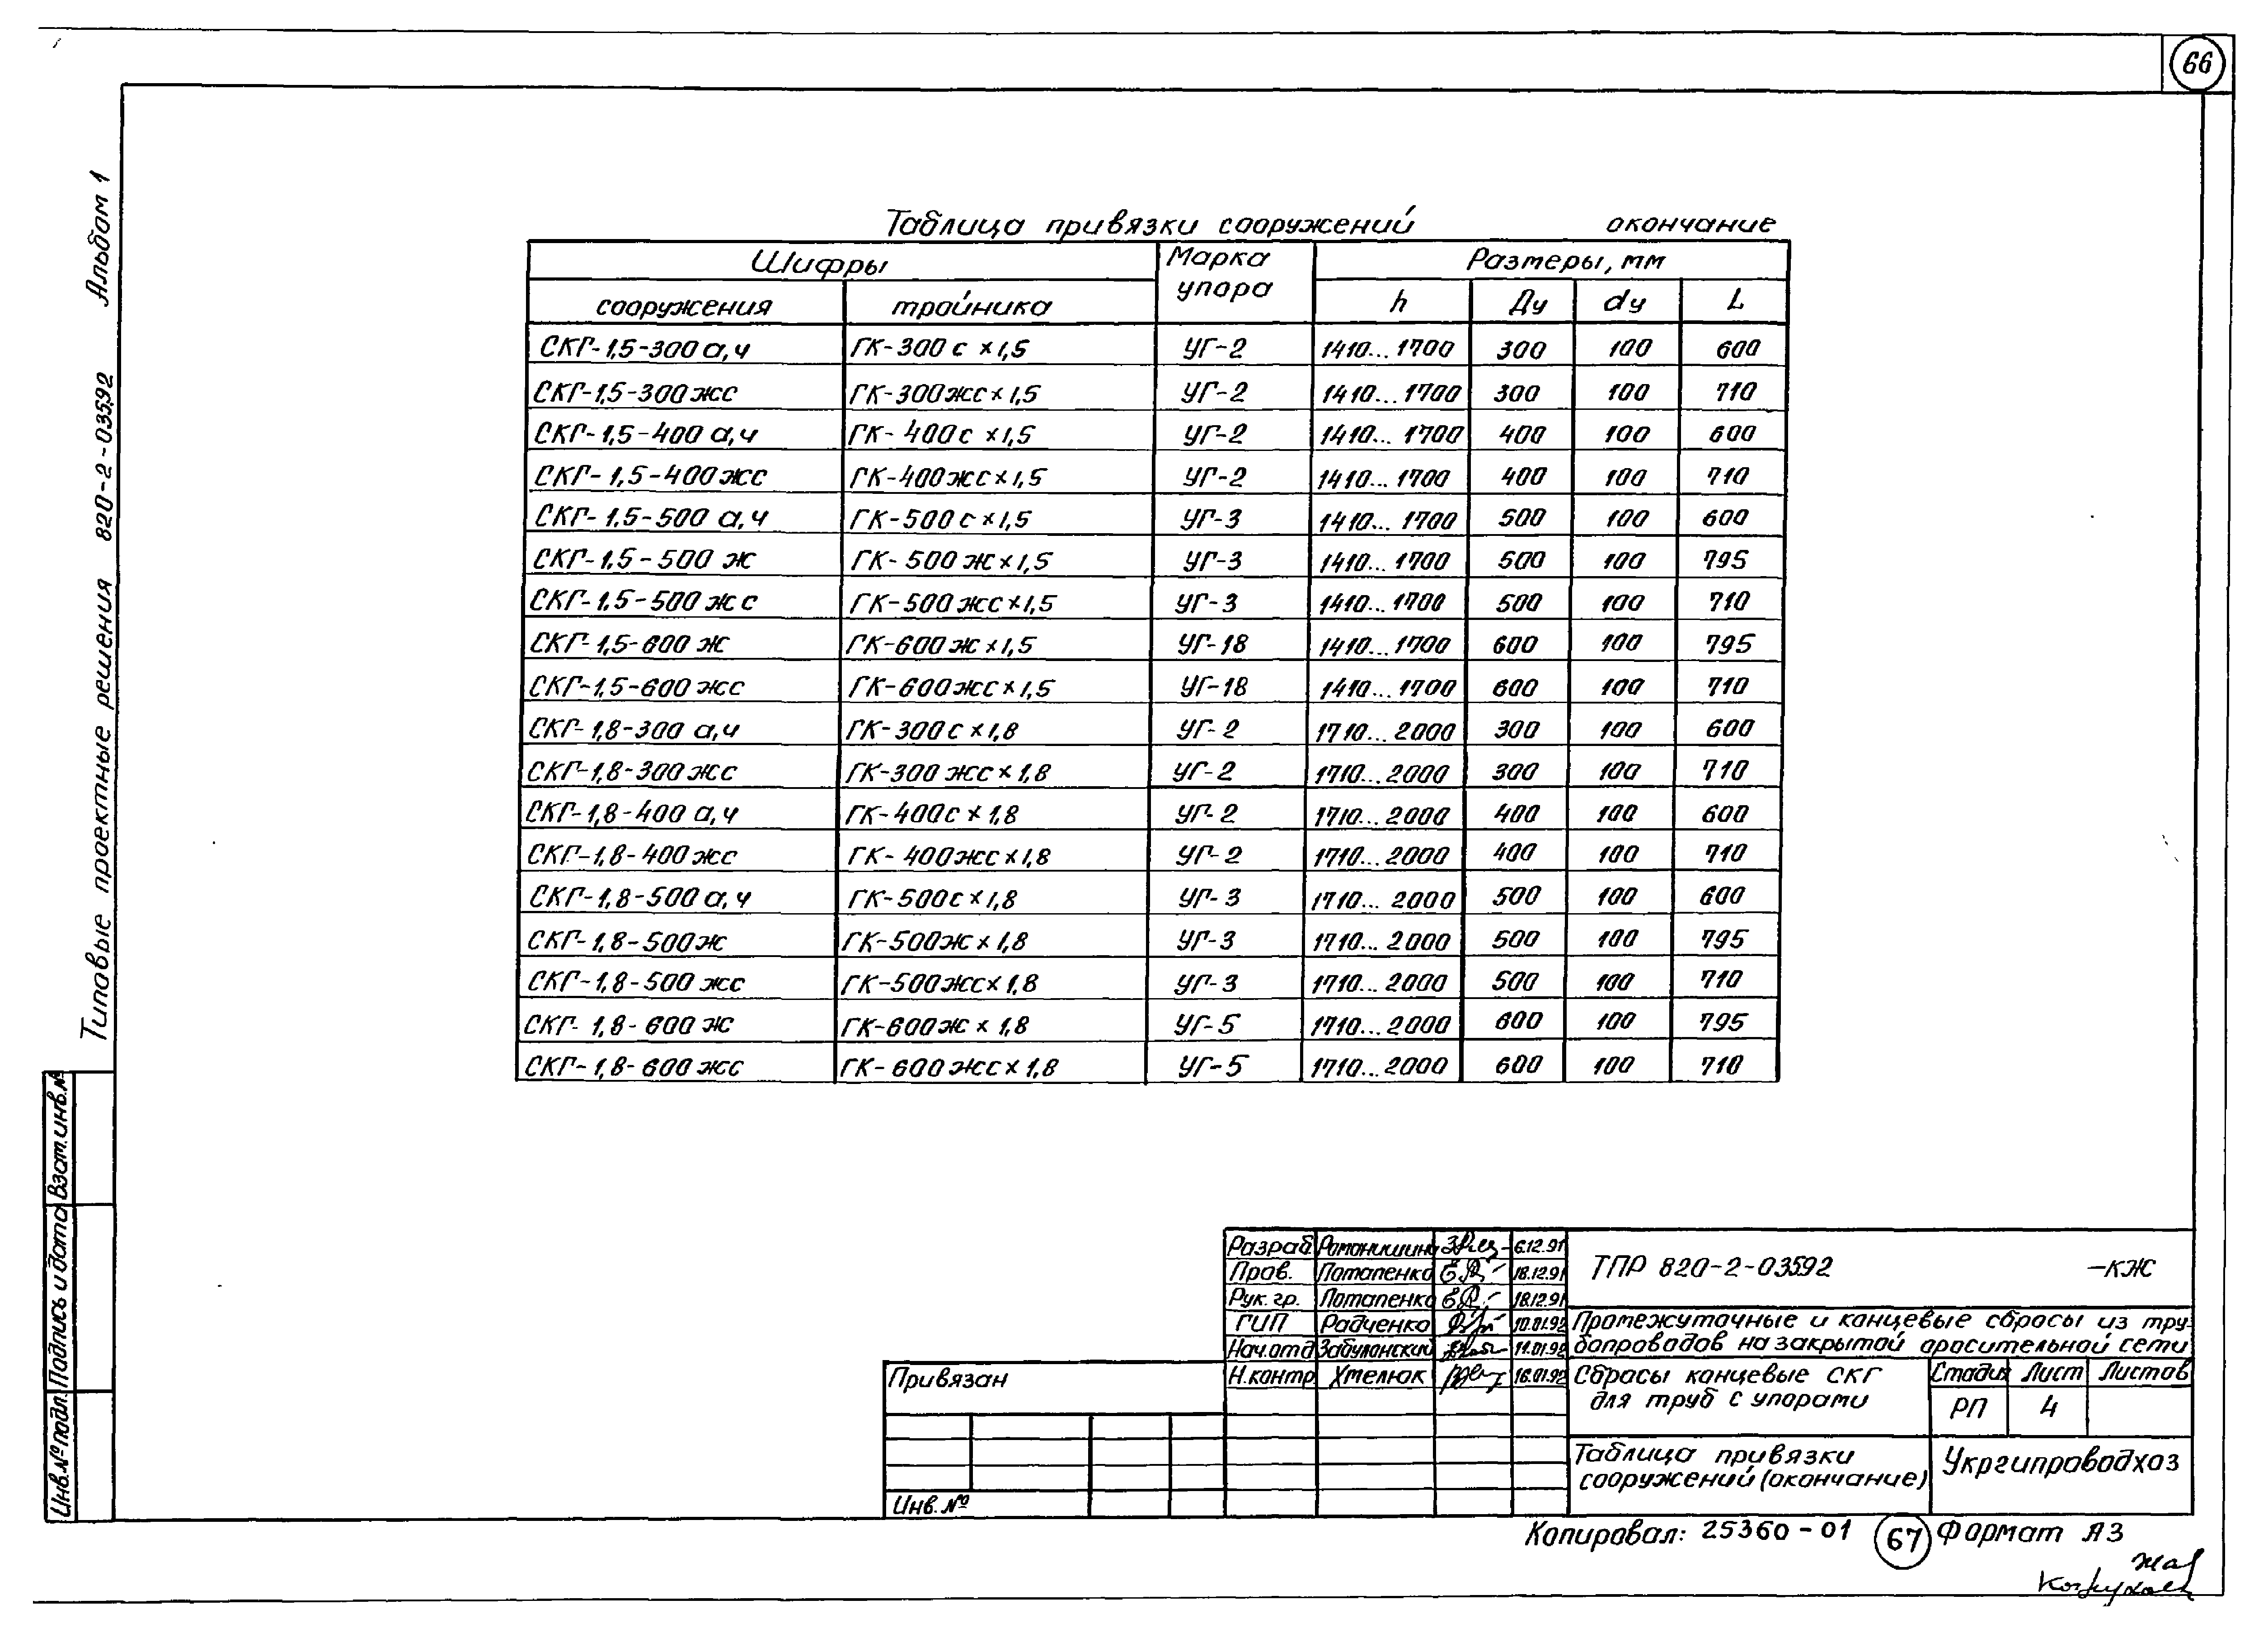 66
Альбом 1
Типовые проектные решения 820-2-03592
Таблица привязки сооружений окончание
Шифры Марка упора Размеры, мм
сооружения тройника h Ду dу L
СКГ-1,5-300 а,ч ГК-300 с ×1,5 УГ-2 1410...1700 300 100 600
СКГ-1,5-300жс ГК-300жс×1,5 УГ-2 1410...1700 300 100 710
СКГ-1,5-400 а,ч ГК-400с ×1,5 УГ-2 1410...1700 400 100 600
СКГ-1,5-400жс ГК-400жс×1,5 УГ-2 1410...1700 400 100 710
СКГ-1,5-500 а,ч ГК-500с×1,5 УГ-3 1410...1700 500 100 600
СКГ-1,5-500 ж ГК-500ж×1,5 УГ-3 1410...1700 500 100 795
СКГ-1,5-500жс ГК-500жс×1,5 УГ-3 1410...1700 500 100 710
СКГ-1,5-600 ж ГК-600ж×1,5 УГ-18 1410...1700 600 100 795
СКГ-1,5-600жс ГК-600жс×1,5 УГ-18 1410...1700 600 100 710
СКГ-1,8-300 а,ч ГК-300с×1,8 УГ-2 1710...2000 300 100 600
СКГ-1,8-300жс ГК-300жс×1,8 УГ-2 1710...2000 300 100 710
СКГ-1,8-400 а,ч ГК-400с×1,8 УГ-2 1710...2000 400 100 600
СКГ-1,8-400жс ГК-400жс×1,8 УГ-2 1710...2000 400 100 710
СКГ-1,8-500 а,ч ГК-500с×1,8 УГ-3 1710...2000 500 100 600
СКГ-1,8-500ж ГК-500ж×1,8 УГ-3 1710...2000 500 100 795
СКГ-1,8-500жс ГК-500жс×1,8 УГ-3 1710...2000 500 100 710
СКГ-1,8-600ж ГК-600ж×1,8 УГ-5 1710...2000 600 100 795
СКГ-1,8-600жс ГК-600жс×1,8 УГ-5 1710...2000 600 100 710
Взам.инв.№
Подпись и дата
Инв.№ подл.
Разраб Романишина 6.12.91
Пров. Потапенко 18.12.91
Рук. гр. Потапенко 18.12.91
ГИП Радченко 10.01.92
Нач.отд Забуланский 11.01.92
Н.контр Хмелюк 16.01.92
ТПР 820-2-03592 -КЖ
Промежуточные и концевые сбросы из тру-
бопроводов на закрытой оросительной сети
Сбросы концевые СКГ
для труб с упорами
Стадия Лист Листов
РП 4
Таблица привязки
сооружений (окончание)
Укргипроводхоз
Привязан
Инв.№
Копировал: 25360-01 67 Формат А3